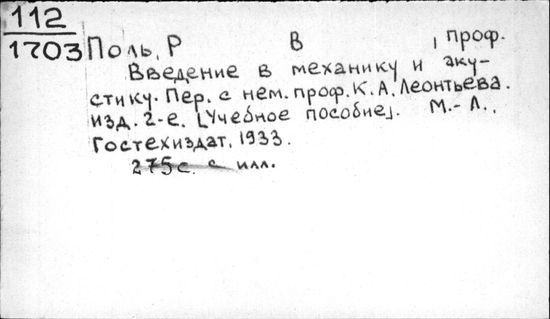 112
1703
Поль, Р В , проф.
Введение в механику и аку-
стику. Пер. с нем. проф. К. А. Леонтьева.
изд. 2-е. [Учебное пособие]. М.-Л.,
Гостехиздат, 1933.
275 с. с илл.